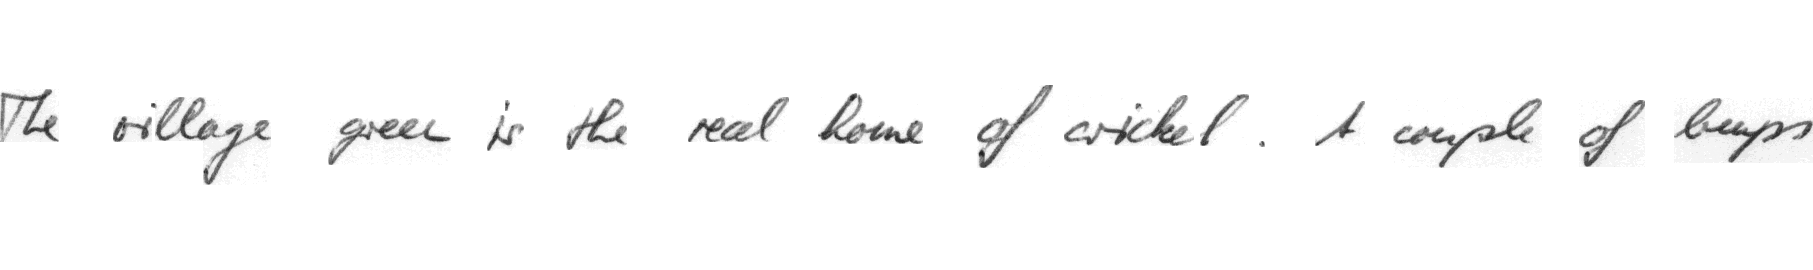 The village green is the real home of cricket. A couple of bumps